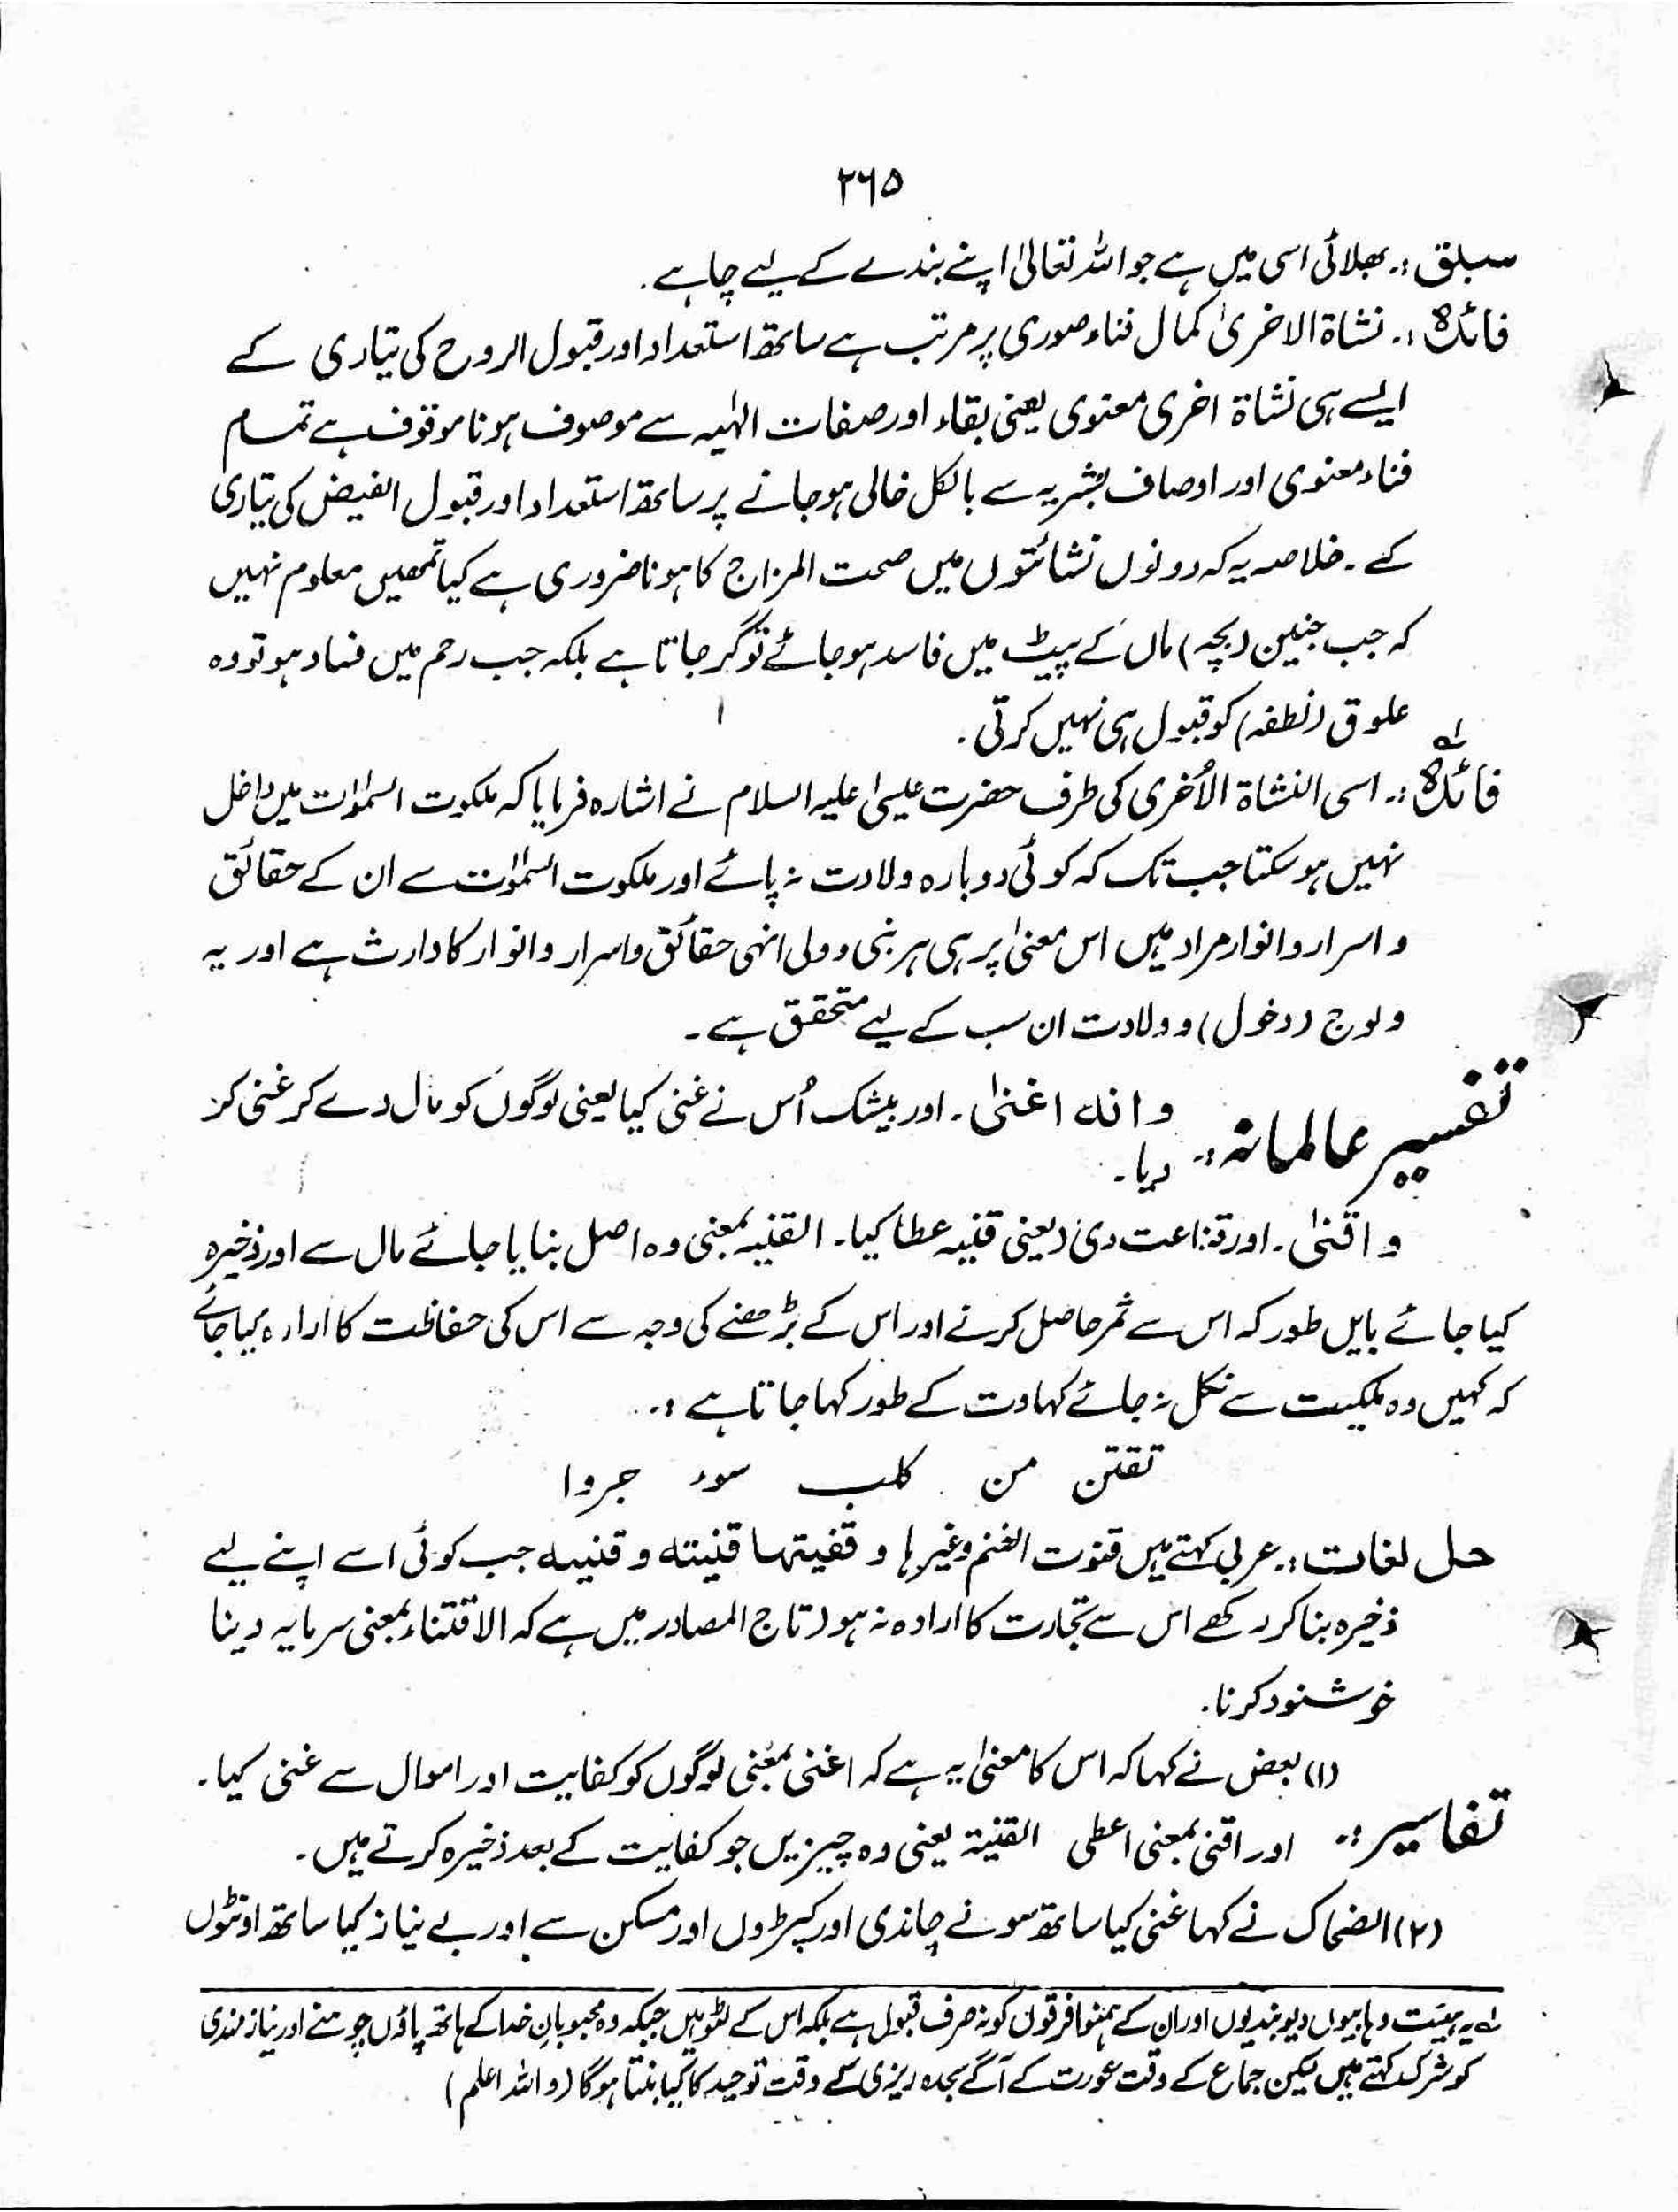 ۲۶۵
سبلق :۔ بھلائی اسی میں ہے جو اللہ تعالیٰ اپنے بندے کے لیے چاہے ۔
فائدہ :۔ نشاۃ الاخریٰ کمال فناء صوری پر مرتب ہے ساتھ استعداد اور قبول الروح کی تیاری کے
ایسے ہی نشاۃ اخری معنوی یعنی بقاء اور صفات الٰہیہ سے موصوف ہونا موقوف ہے تمام
فناء معنوی اور اوصاف بشریہ سے بالکل خالی ہو جانے پر ساتھ استعداد اور قبول الفیض کی تیاری
کے ۔ خلاصہ یہ کہ دونوں نشائتوں میں صحت المزاج کا ہونا ضروری ہے کیا تمھیں معلوم نہیں
کہ جب جنین (بچہ) ماں کے پیٹ میں فاسد ہو جائے تو گر جاتا ہے بلکہ جب رحم میں فساد ہو تو وہ
علوق (نطفہ) کو قبول ہی نہیں کرتی ۔
فائدہ لہ :۔ اسی النشاۃ الاُخری کی طرف حضرت عیسیٰ علیہ السلام نے اشارہ فرمایا کہ ملکوت السمٰوات میں داخل
نہیں ہو سکتا جب تک کہ کوئی دوبارہ ولادت نہ پائے اور ملکوت السمٰوات سے ان کے حقائق
و اسرار و انوار مراد ہیں اس معنیٰ پر ہی ہر نبی و ولی انہی حقائق و اسرار و انوار کا وارث ہے اور یہ
ولوج (دخول) و ولادت ان سب کے لیے متحقق ہے ۔
تفسیر عالمانہ :۔ وانہ اغنیٰ ۔ اور بیشک اُس نے غنی کیا یعنی لوگوں کو مال دے کر غنی کر
دیا ۔
و اقنیٰ ۔ اور قناعت دی (یعنی قنیہ عطا کیا ۔ القنیہ بمعنی وہ اصل بنایا جائے مال سے اور ذخیرہ
کیا جائے بایں طور کہ اس سے ثمر حاصل کرنے اور اس کے بڑھنے کی وجہ سے اس کی حفاظت کا ارادہ کیا جائے
کہ کہیں وہ ملکیت سے نکل نہ جائے کہاوت کے طور کہا جاتا ہے :۔
تقتن من کلب سوء جروا
حل لغات :۔ عربی کہتے ہیں قنوت الغنم وغیرہا و قفیتہا قنیتہ و قنیہ جب کوئی اسے اپنے لیے
ذخیرہ بنا کر رکھے اس سے تجارت کا ارادہ نہ ہو (تاج المصادر میں ہے کہ الاقتناء بمعنی سرمایہ دینا
خوشنود کرنا ۔
(۱) بعض نے کہا کہ اس کا معنیٰ یہ ہے کہ اغنی بمعنی لوگوں کو کفایت اور اموال سے غنی کیا ۔
تفاسیر :۔ اور اقنی بمعنی اعطی القنیۃ یعنی وہ چیزیں جو کفایت کے بعد ذخیرہ کرتے ہیں ۔
(۲) الضحاک نے کہا غنی کیا ساتھ سونے چاندی اور کپڑوں اور مسکن سے اور بے نیاز کیا ساتھ اونٹوں
لہ یہ ہیئت وہابیوں دیوبندیوں اور ان کے ہمنوا فرقوں کو نہ صرف قبول ہے بلکہ اس کے لٹو ہیں جبکہ وہ محبوبانِ خدا کے ہاتھ پاؤں چومنے اور نیاز مندی
کو شرک کہتے ہیں لیکن جماع کے وقت عورت کے آگے سجدہ ریزی کے وقت توحید کا کیا بنتا ہوگا (واللہ اعلم)